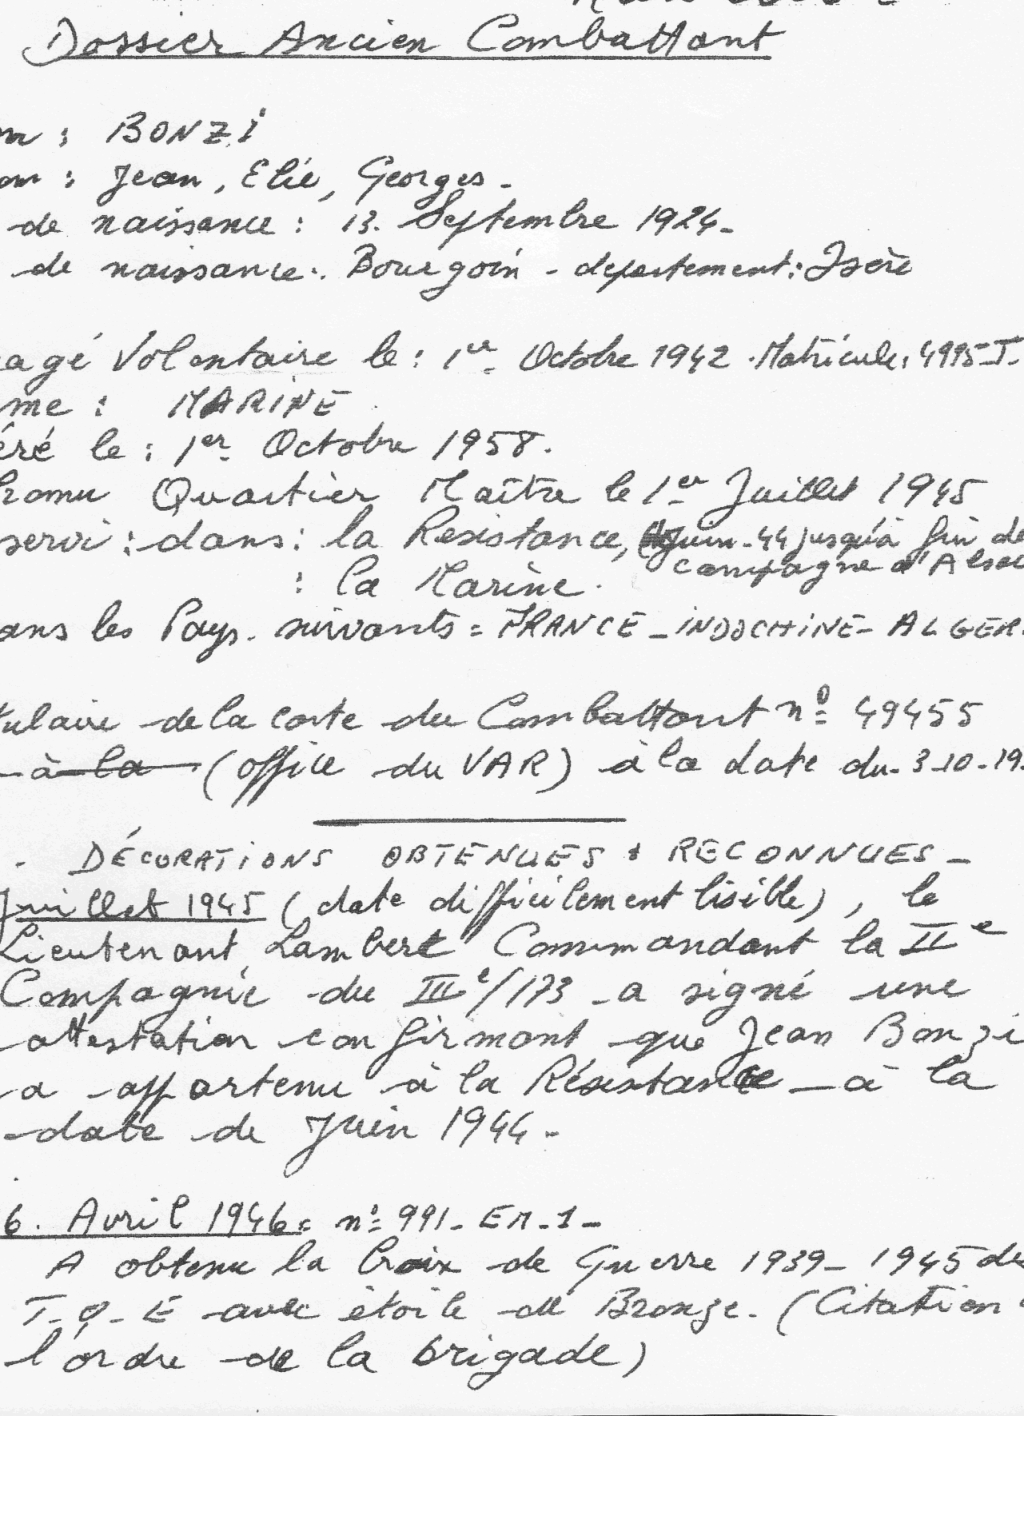 Dossier Ancien Combattant
m : BONZI
om : Jean, Elie, Georges -
de naissance : 13. Septembre 1924 -
de naissance : Bourgoin - département : Isère
agé Volontaire le : 1er Octobre 1942 - Matricule : 4995-T.
me : MARINE
éré le : 1er Octobre 1958.
Promu Quartier Maître le 1er Juillet 1945
servi : dans : la Resistance, (Juin-44 jusqu'à fin de
campagne d'Alsac
: la Marine.
ans les Pays suivants = FRANCE - INDOCHINE - ALGER
tulaire de la carte du Combattant n° 49455
à la (office du VAR) à la date du 3-10-19
- DÉCORATIONS OBTENUES & RECONNUES -
Juillet 1945 (date difficilement lisible), le
Lieutenant Lambert Commandant la IIe
Compagnie du IIIe/173 - a signé une
attestation confirmant que Jean Bonzi
a appartenu à la Résistance - à la
date de Juin 1944 -
6. Avril 1946 : n° 991 - EM - 1 -
A obtenu la Croix de Guerre 1939 - 1945 des
T.O.E avec étoile de Bronze. (Citation
l'ordre de la brigade)